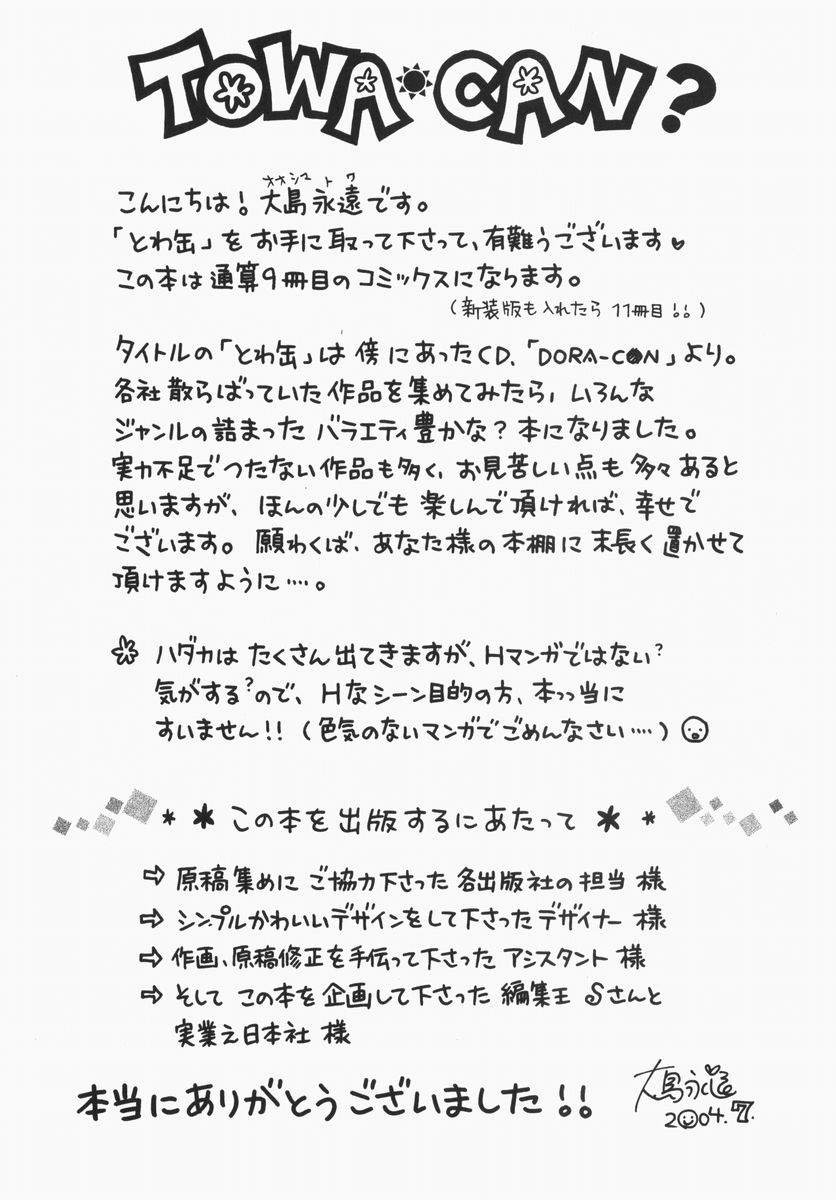 TOWA・CAN?
オオシマ トワ
こんにちは！大島永遠です。
「とわ缶」を お手に取って下さって、有難うございます♥
この本は 通算9冊目のコミックスになります。
（新装版も入れたら 11冊目！！）
タイトルの「とわ缶」は 傍にあったCD、「DORA-CON」より。
各社 散らばっていた 作品を集めてみたら、いろんな
ジャンルの詰まった バラエティ豊かな？ 本になりました。
実力不足でつたない作品も多く、お見苦しい点も 多々 あると
思いますが、ほんの少しでも 楽しんで頂ければ、幸せで
ございます。 願わくば、あなた様の本棚に 末長く置かせて
頂けますように…。
ハダカは たくさん出てきますが、Hマンガではない？
気がする？ので、Hなシーン目的の方、本っ当に
すいません!!（色気のないマンガでごめんなさい…）
＊＊ この本を出版するにあたって ＊＊
⇨ 原稿集めに ご協力下さった 各出版社の担当様
⇨ シンプルかわいいデザインをして下さったデザイナー様
⇨ 作画、原稿修正を手伝って下さった アシスタント様
⇨ そして この本を企画して下さった 編集王 Sさんと
実業之日本社 様
本当にありがとうございました!!
大島永遠
2004.7.